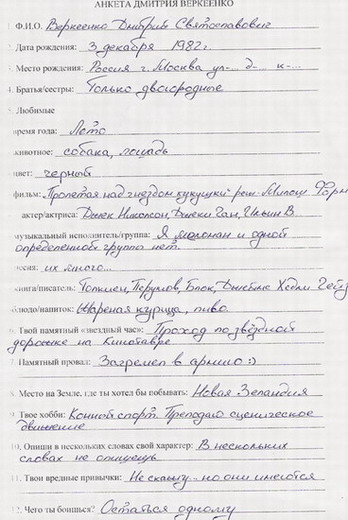 АНКЕТА ДМИТРИЯ ВЕРКЕЕНКО
1. Ф.И.О. Веркеенко Дмитрий Святославович
2. Дата рождения: 3 декабря 1982 г.
3. Место рождения: Россия г. Москва ул-... д-... к-...
4. Братья/сестры: Только двоюродные
5. Любимые
время года: Лето
животное: собака, лошадь
цвет: черный
фильм: Пролетая над гнездом кукушки реж. Милош Форм
актер/актриса: Джек Николсон, Джеки Чан, Ильин В.
музыкальный исполнитель/группа: Я меломан и одной
определенной группы нет.
песня: их много...
книга/писатель: Толкиен, Перумов, Блок, Джеймс Хедли Чейз
блюдо/напиток: Жареная курица, пиво
6. Твой памятный «звездный час»: Проход по звёздной
дорожке на Кинотавре
7. Памятный провал: Загремел в армию :)
8. Место на Земле, где ты хотел бы побывать: Новая Зеландия
9. Твое хобби: Конный спорт. Преподаю сценическое
движение
10. Опиши в нескольких словах свой характер: В нескольких
словах не опишешь
11. Твои вредные привычки: Не скажу - но они имеются
12. Чего ты боишься? Остаться одному